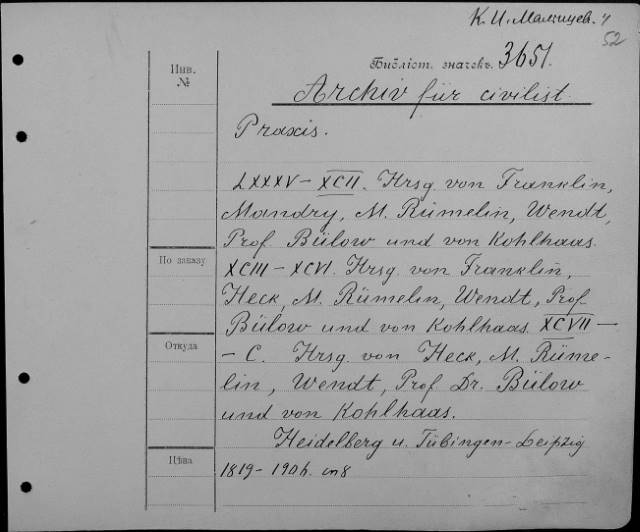 К. И. Малышев. 4
52
Инв.
№
Библіот. значекъ. 3651.
Archiv für civilist.
Praxis.
LXXXV – XCII. Hrsg. von Franklin,
Mandry, M. Rümelin, Wendt,
Prof. Bülow und von Kohlhaas.
По заказу
XCIII – XCVI. Hrsg. von Franklin,
Heck, M. Rümelin, Wendt, Prof.
Bülow und von Kohlhaas. XCVII –
Откуда
– C. Hrsg. von Heck, M. Rüme-
lin, Wendt, Prof. Dr. Bülow
und von Kohlhaas.
Heidelberg u. Tübingen-Leipzig
Цѣна
1819–1906. in 8